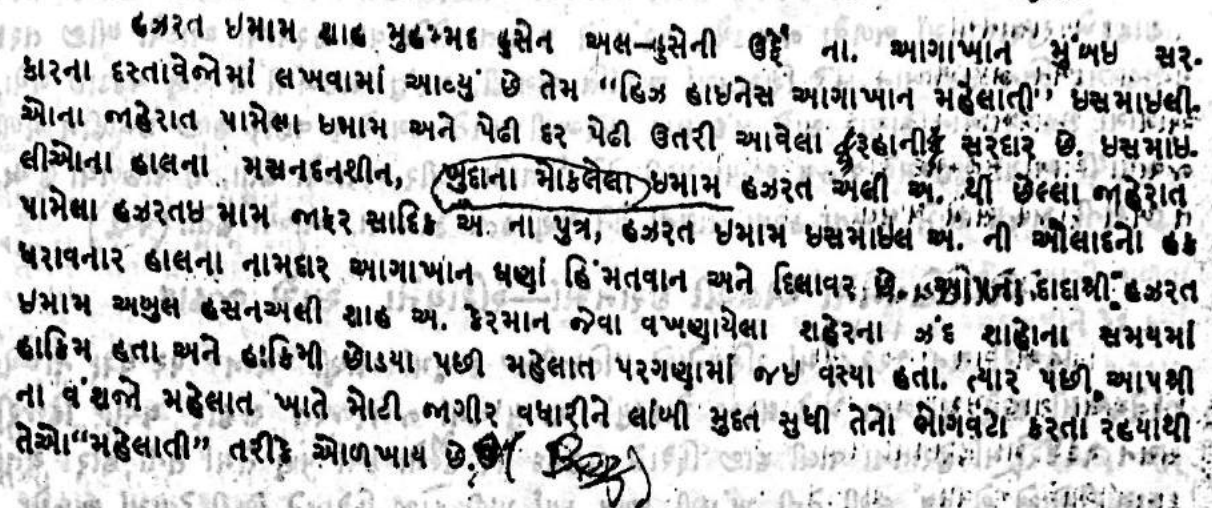 હઝરત ઇમામ શાહ મુહમ્મદ હુસેન અલ-હુસેની ઉર્ફે ના. આગાખાન મુંબઇ સર-
કારના દસ્તાવેજોમાં લખવામાં આવ્યું છે તેમ “હિઝ હાઇનેસ આગાખાન મહેલાતી” ઇસમાઇલી-
ઓના જાહેરાત પામેલા ઇમામ અને પેઢી દર પેઢી ઉતરી આવેલા રૂહાની સરદાર છે. ઇસમાઇ-
લીઓના હાલના મસનદનશીન, ખુદાના મોકલેલા ઇમામ હઝરત અલી અ. થી છેલ્લા જાહેરાત
પામેલા હઝરતઇ મામ જાફર સાદિક અ. ના પુત્ર, હઝરત ઇમામ ઇસમાઇલ અ. ની ઔલાદનો હક
ધરાવનાર હાલના નામદાર આગાખાન ઘણાં હિંમતવાન અને દિલાવર છે. દાદાશ્રી હઝરત
ઇમામ અબુલ હસનઅલી શાહ અ. કેરમાન જેવા વખણાયેલા શહેરના ઝંદ શાહોના સમયમાં
હાકિમ હતા અને હાકિમી છોડયા પછી મહેલાત પરગણામાં જઇ વસ્યા હતા. ત્યાર પછી આપશ્રી
ના વંશજો મહેલાત ખાતે મોટી જાગીર વધારીને લાંબી મુદત સુધી તેનો ભોગવટો કરતા રહયાથી
તેઓ“મહેલાતી” તરીકે ઓળખાય છે.